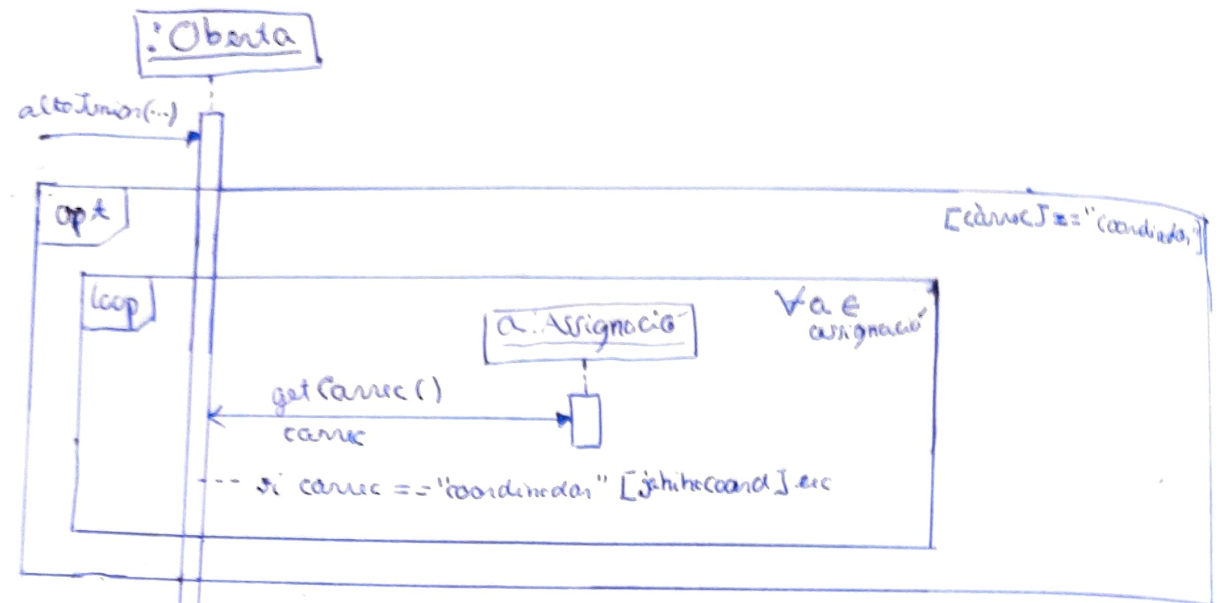 :Oberta
altaJunior(...)
opt
[càrrec] == "coordinador"]
loop
a:Assignació
∀a ∈
assignació
getCarrec()
carrec
--- si carrec == "coordinador" [jahihacoord] exc